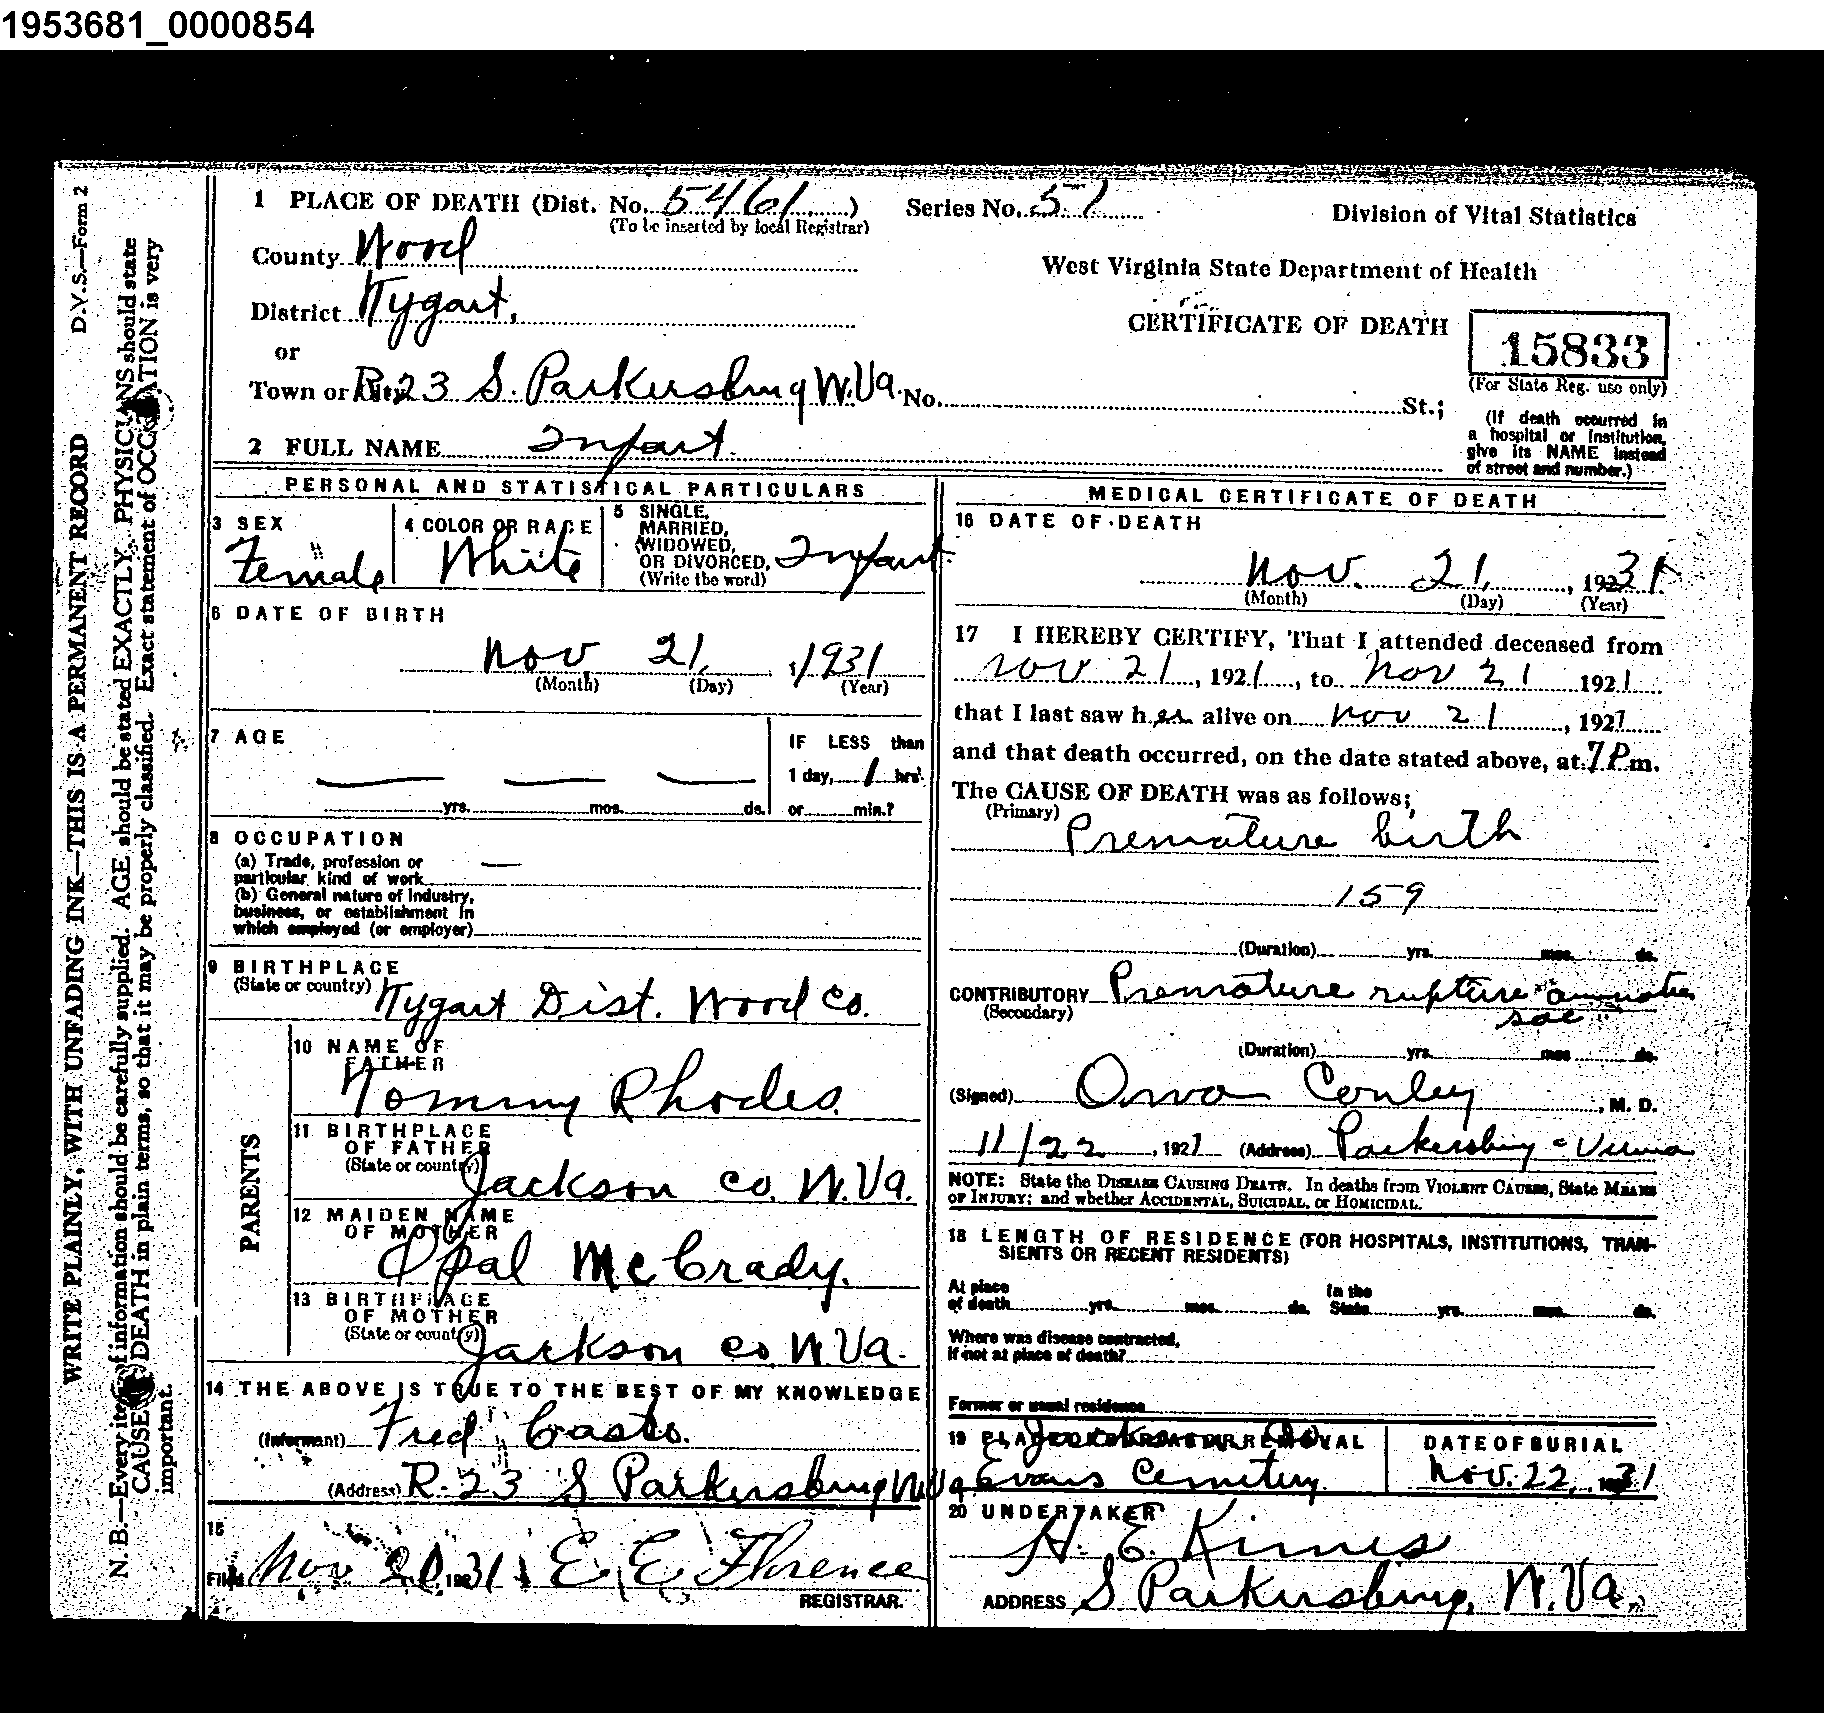 1953681_0000854
D.V.S.—Form 2
WRITE PLAINLY, WITH UNFADING INK—THIS IS A PERMANENT RECORD
N. B.—Every item of information should be carefully supplied. AGE should be stated EXACTLY. PHYSICIANS should state
CAUSE OF DEATH in plain terms, so that it may be properly classified. Exact statement of OCCUPATION is very
important.
1 PLACE OF DEATH (Dist. No. 5461) Series No. 57
(To be inserted by local Registrar)
Division of Vital Statistics
County Wood
West Virginia State Department of Health
District Tygart,
CERTIFICATE OF DEATH
15833
(For State Reg. use only)
or
Town or City R-23 S. Parkersburg W.Va. No. St.;
(If death occurred in
a hospital or Institution,
give its NAME instead
of street and number.)
2 FULL NAME Infant.
PERSONAL AND STATISTICAL PARTICULARS
3 SEX
Female
4 COLOR OR RACE
White
5 SINGLE,
MARRIED,
WIDOWED,
OR DIVORCED,
(Write the word)
Infant.
6 DATE OF BIRTH
Nov 21, 1931
(Month) (Day) (Year)
7 AGE
yrs. mos. ds.
IF LESS than
1 day, 1 hrs.
or min.?
8 OCCUPATION
(a) Trade, profession or
particular kind of work —
(b) General nature of Industry,
business, or establishment in
which employed (or employer)
9 BIRTHPLACE
(State or country) Tygart Dist. Wood Co.
PARENTS
10 NAME OF
FATHER
Tommy Rhodes.
11 BIRTHPLACE
OF FATHER
(State or country)
Jackson Co. W.Va.
12 MAIDEN NAME
OF MOTHER
Opal McCrady.
13 BIRTHPLACE
OF MOTHER
(State or country)
Jackson Co W.Va.
14 THE ABOVE IS TRUE TO THE BEST OF MY KNOWLEDGE
(Informant) Fred Casto.
(Address) R-23 S Parkersburg W.Va
15
Filed Nov 1931 E E Florence
REGISTRAR.
MEDICAL CERTIFICATE OF DEATH
16 DATE OF DEATH
Nov. 21, 1931
(Month) (Day) (Year)
17 I HEREBY CERTIFY, That I attended deceased from
Nov 21, 1921, to Nov 21 1921
that I last saw her alive on Nov 21, 1927
and that death occurred, on the date stated above, at 7 P m.
The CAUSE OF DEATH was as follows;
(Primary)
Premature birth
159
(Duration) yrs. mos. ds.
CONTRIBUTORY Premature rupture amniotic
(Secondary)
sac
(Duration) yrs. mos. ds.
(Signed) Conley, M. D.
11/22, 1927 (Address) Parkersburg
NOTE: State the DISEASE CAUSING DEATH. In deaths from VIOLENT CAUSES, State MEANS
OF INJURY; and whether ACCIDENTAL, SUICIDAL, or HOMICIDAL.
18 LENGTH OF RESIDENCE (FOR HOSPITALS, INSTITUTIONS, TRAN-
SIENTS OR RECENT RESIDENTS)
At place
of death yrs. mos. ds.
In the
State yrs. mos. ds.
Where was disease contracted,
if not at place of death?
Former or usual residence
19 PLACE OF BURIAL OR REMOVAL
Jackson Co
Evans Cemetery.
DATE OF BURIAL
Nov. 22, 1931
20 UNDERTAKER
H. E.
ADDRESS S Parkersburg, W.Va.